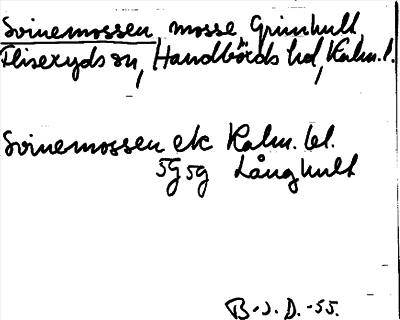 Svinemossen, mosse, Grimhult,
Fliseryds sn, Handbörds hd, Kalm. l.
Svinemossen ek Kalm. bl.
5G5g Långhult
B.J.D. -55.